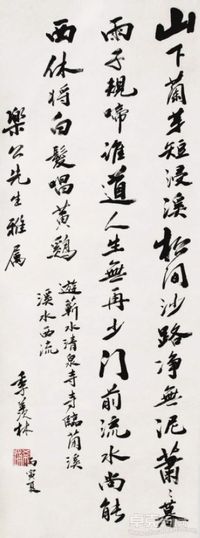 山下蘭芽短浸溪松间沙路净無泥蕭々暮
雨子規啼谁道人生無再少门前流水尚能
西休将白髮唱黄鷄
遊蘄水清泉寺寺臨蘭溪
溪水西流
樂公先生雅属
季羡林
丙寅夏